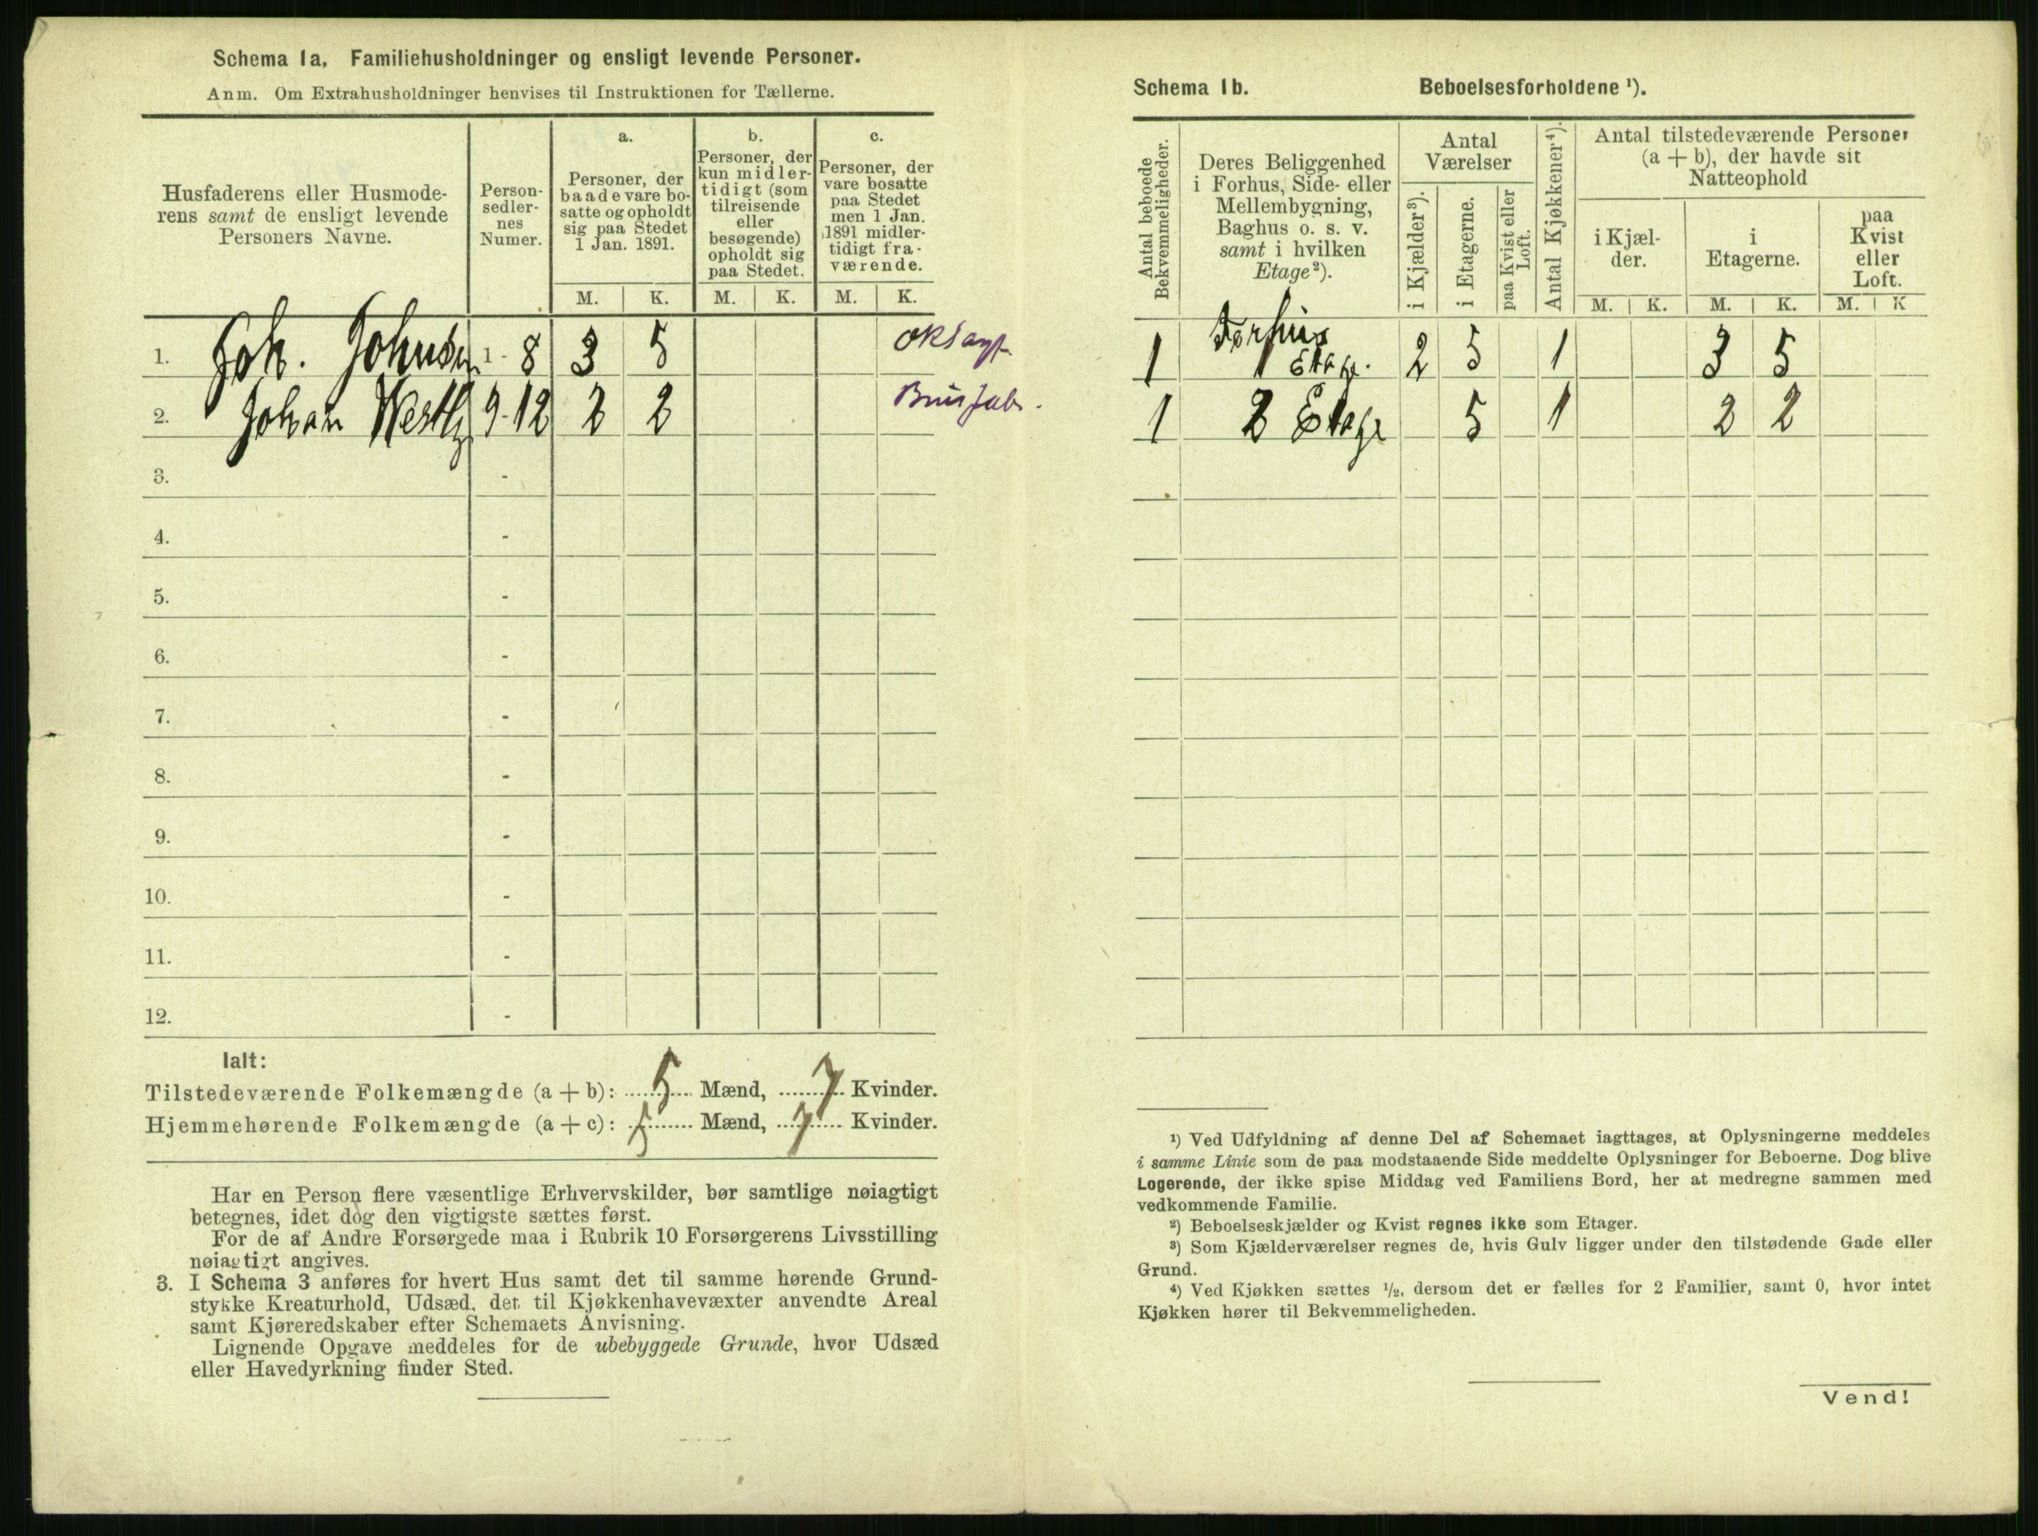 Schema 1a. Familiehusholdninger og ensligt levende Personer.
Anm. Om Extrahusholdninger henvises til Instruktionen for Tællerne.
Husfaderens eller Husmode-
rens samt de ensligt levende
Personers Navne.
Person-
sedler-
nes
Numer.
a.
Personer, der
baade vare bo-
satte og opholdt
sig paa Stedet
1 Jan. 1891.
b.
Personer, der
kun midler-
tidigt (som
tilreisende
eller
besøgende)
opholdt sig
paa Stedet.
c.
Personer, der
vare bosatte
paa Stedet
men 1 Jan.
1891 midler-
tidigt fra-
værende.
M. K. M. K. M. K.
1. Joh. Johnsen 1 - 8 3 5
2. Johan Westly 9-12 2 2
3. -
4. -
5. -
6. -
7. -
8. -
9. -
10. -
11. -
12. -
Ialt:
Tilstedeværende Folkemængde (a + b): 5 Mænd, 7 Kvinder.
Hjemmehørende Folkemængde (a + c): 5 Mænd, 7 Kvinder.
Har en Person flere væsentlige Erhvervskilder, bør samtlige nøiagtigt
betegnes, idet dog den vigtigste sættes først.
For de af Andre Forsørgede maa i Rubrik 10 Forsørgerens Livsstilling
nøiagtigt angives.
3. I Schema 3 anføres for hvert Hus samt det til samme hørende Grund-
stykke Kreaturhold, Udsæd, det til Kjøkkenhavevæxter anvendte Areal
samt Kjøreredskaber efter Schemaets Anvisning.
Lignende Opgave meddeles for de ubebyggede Grunde, hvor Udsæd
eller Havedyrkning finder Sted.
Schema 1b. Beboelsesforholdene ¹).
Antal beboede
Bekvemmeligheder.
Deres Beliggenhed
i Forhus, Side- eller
Mellembygning,
Baghus o. s. v.
samt i hvilken
Etage²).
Antal
Værelser
i Kjælder³).
i Etagerne.
paa Kvist eller
Loft.
Antal Kjøkkener⁴).
Antal tilstedeværende Personer
(a + b), der havde sit
Natteophold
i Kjæl-
der.
i
Etagerne.
paa
Kvist
eller
Loft.
M. K. M. K. M. K
1 Forhus 1 Etage. 2 5 1 3 5
1 2 Etage 5 1 2 2
¹) Ved Udfyldning af denne Del af Schemaet iagttages, at Oplysningerne meddeles
i samme Linie som de paa modstaaende Side meddelte Oplysninger for Beboerne. Dog blive
Logerende, der ikke spise Middag ved Familiens Bord, her at medregne sammen med
vedkommende Familie.
²) Beboelseskjælder og Kvist regnes ikke som Etager.
³) Som Kjælderværelser regnes de, hvis Gulv ligger under den tilstødende Gade eller
Grund.
⁴) Ved Kjøkken sættes ½, dersom det er fælles for 2 Familier, samt 0, hvor intet
Kjøkken hører til Bekvemmeligheden.
Vend!